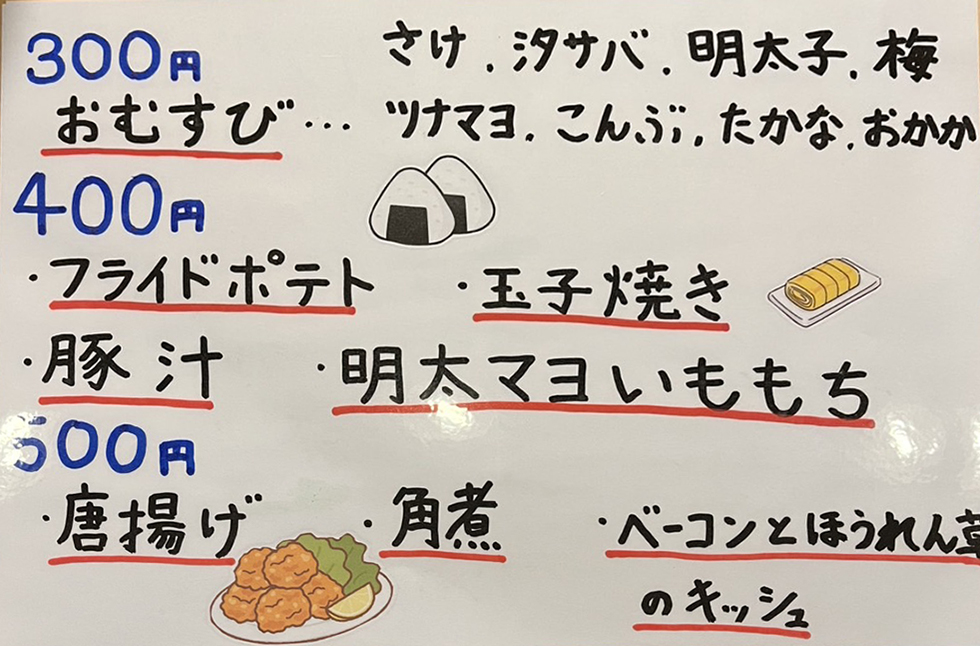 300円
さけ、汐サバ、明太子、梅
おむすび… ツナマヨ、こんぶ、たかな、おかか
400円
・フライドポテト ・玉子焼き
・豚汁 ・明太マヨいももち
500円
・唐揚げ ・角煮 ・ベーコンとほうれん草
のキッシュ